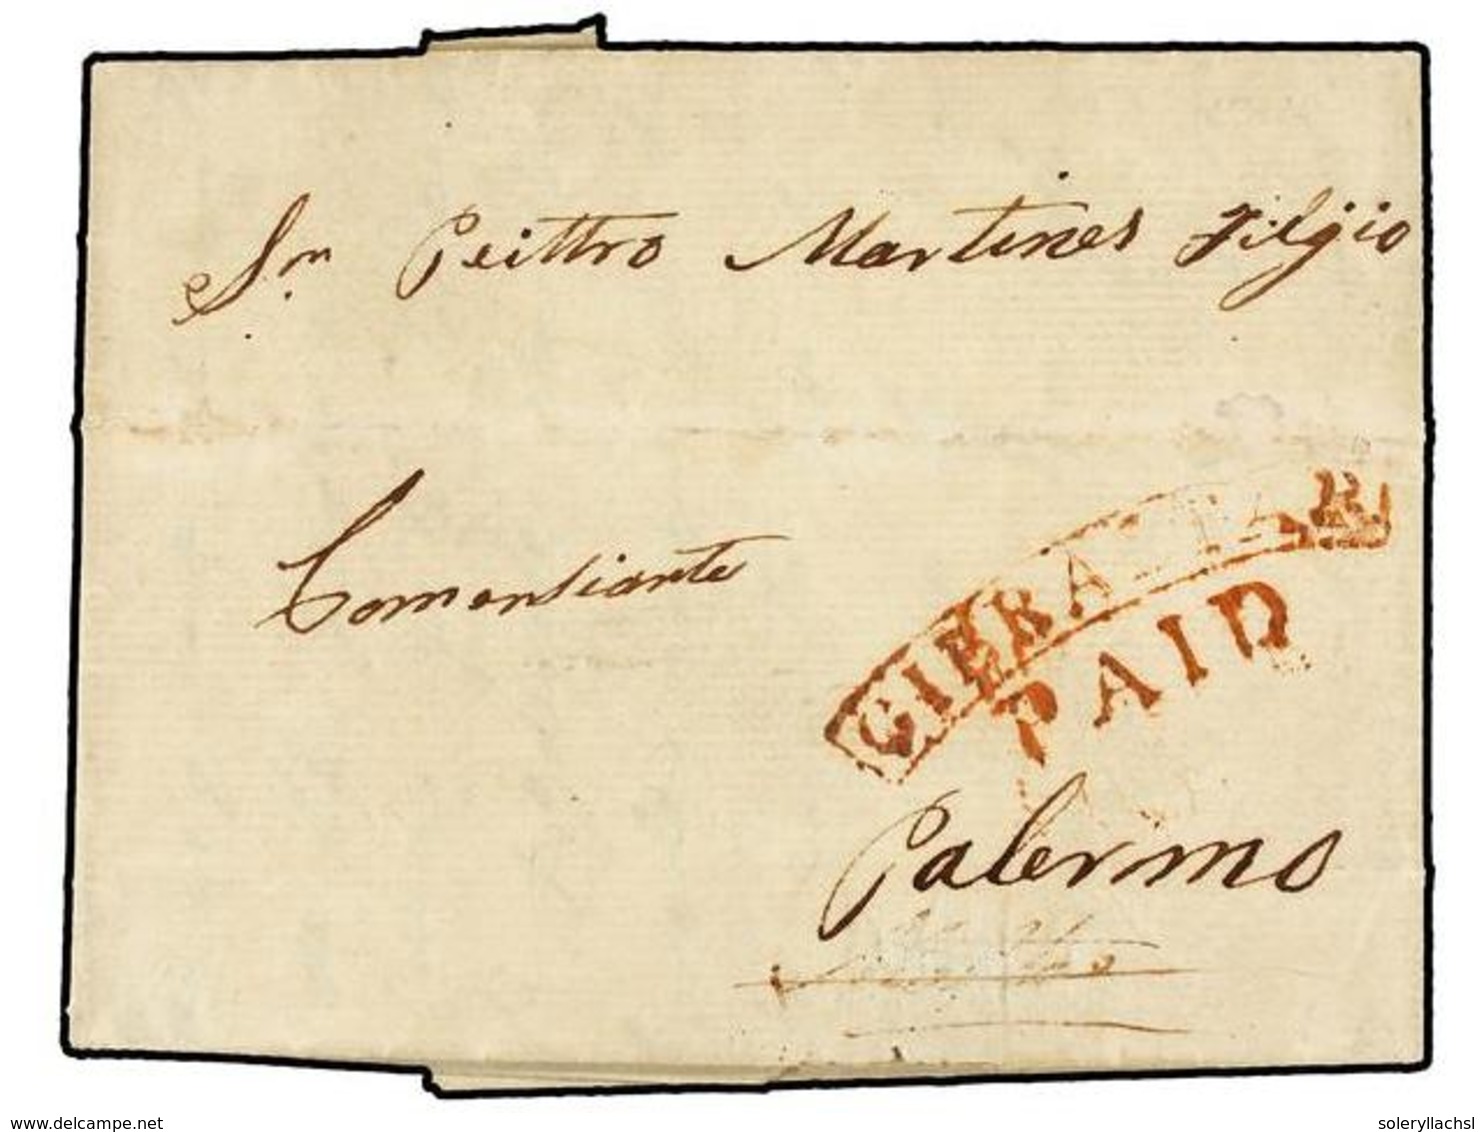 Sr. Peittro Martines Filgio
Comensiante
GIBRALTAR.
PAID
Palermo
delcampe.net
soleryllachsl